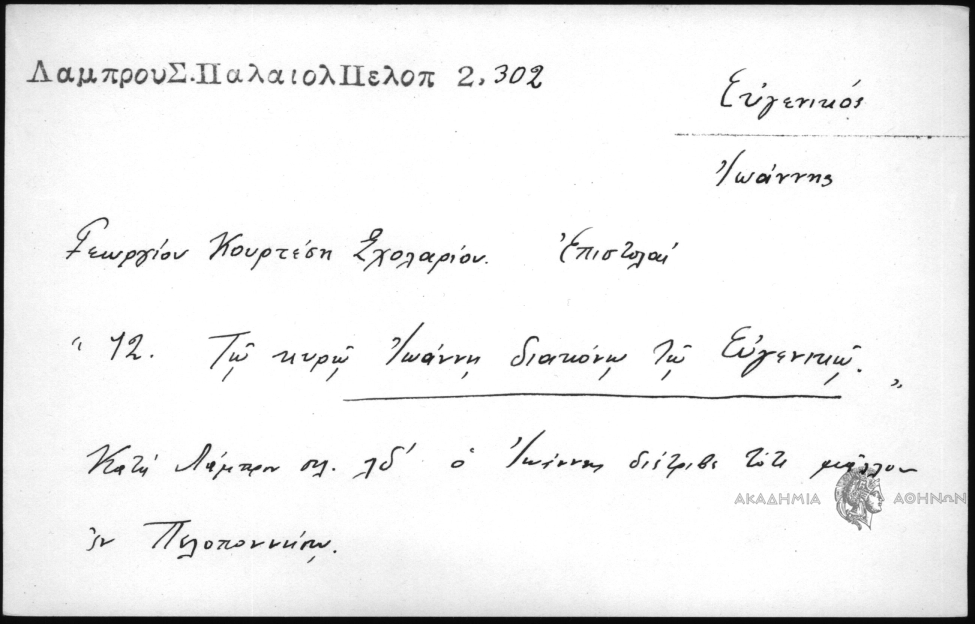 ΛαμπρουΣ.ΠαλαιολΠελοπ 2,302
Εὐγενικός
Ἰωάννης
Γεωργίου Κουρτέση Σχολαρίου. Ἐπιστολαί
" 12. Τῷ κυρῷ Ἰωάννῃ διακόνῳ τῷ Εὐγενικῷ. "
Κατὰ Λάμπρον σελ. λδ' ὁ Ἰωάννης διέτριβε τότε μᾶλλον
ἐν Πελοποννήσῳ.
ΑΚΑΔΗΜΙΑ ΑΘΗΝΩΝ